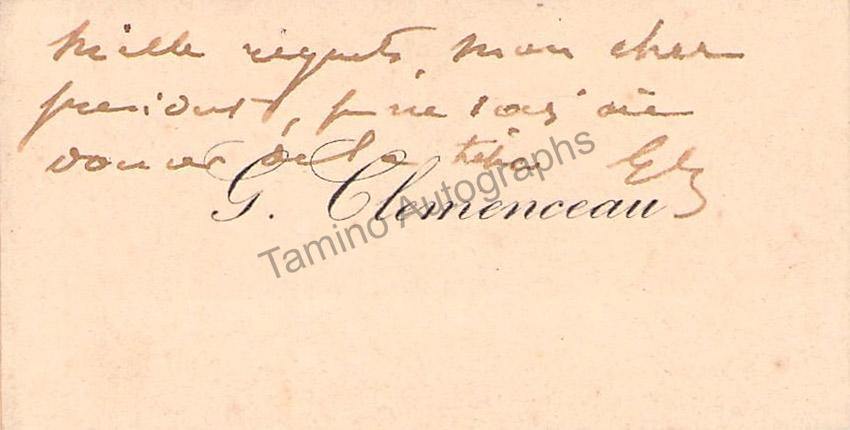 Mille regrets, mon cher
president, je ne sais où
donner de la tête. GC
G. Clemenceau
Tamino Autographs